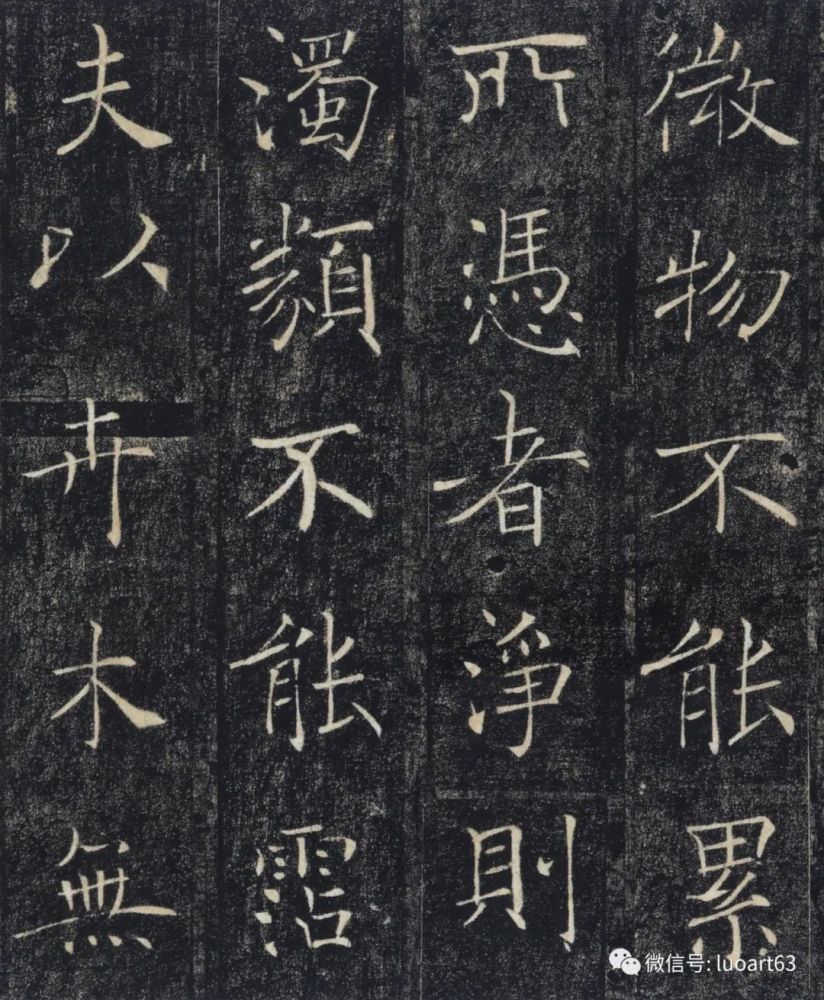 微物不能累
所憑者淨則
濁類不能霑
夫以卉木無
微信号: luoart63